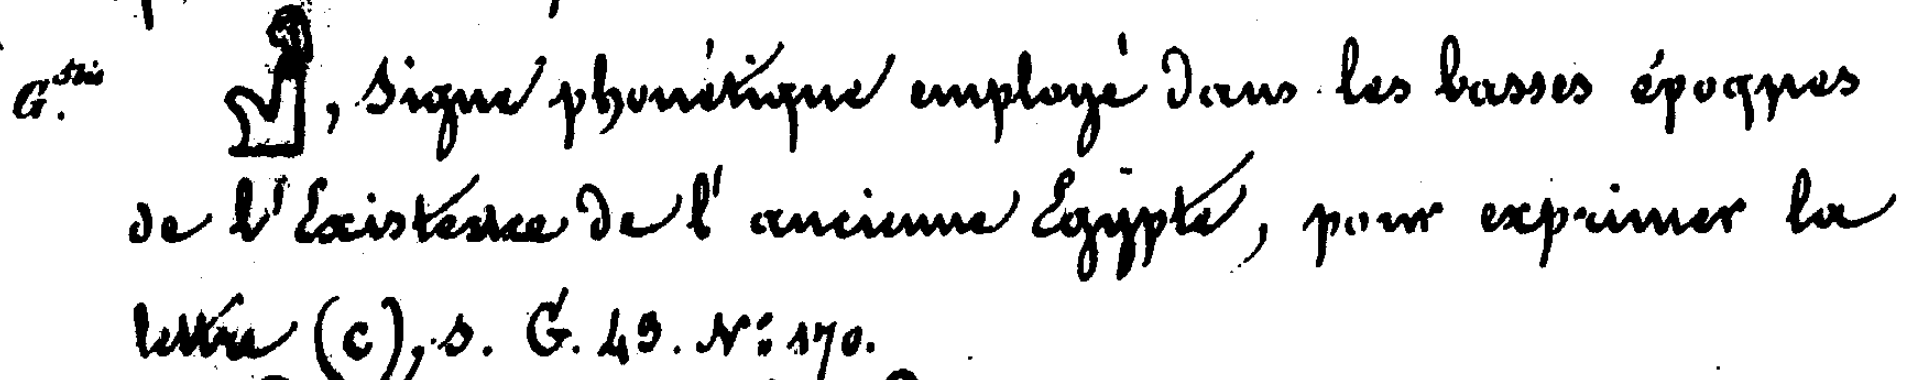 G. , Signe phonétique employé dans les basses époques
de l'Existence de l'ancienne Egypte, pour exprimer la
lettre (c), s. G. 49. N: 170.